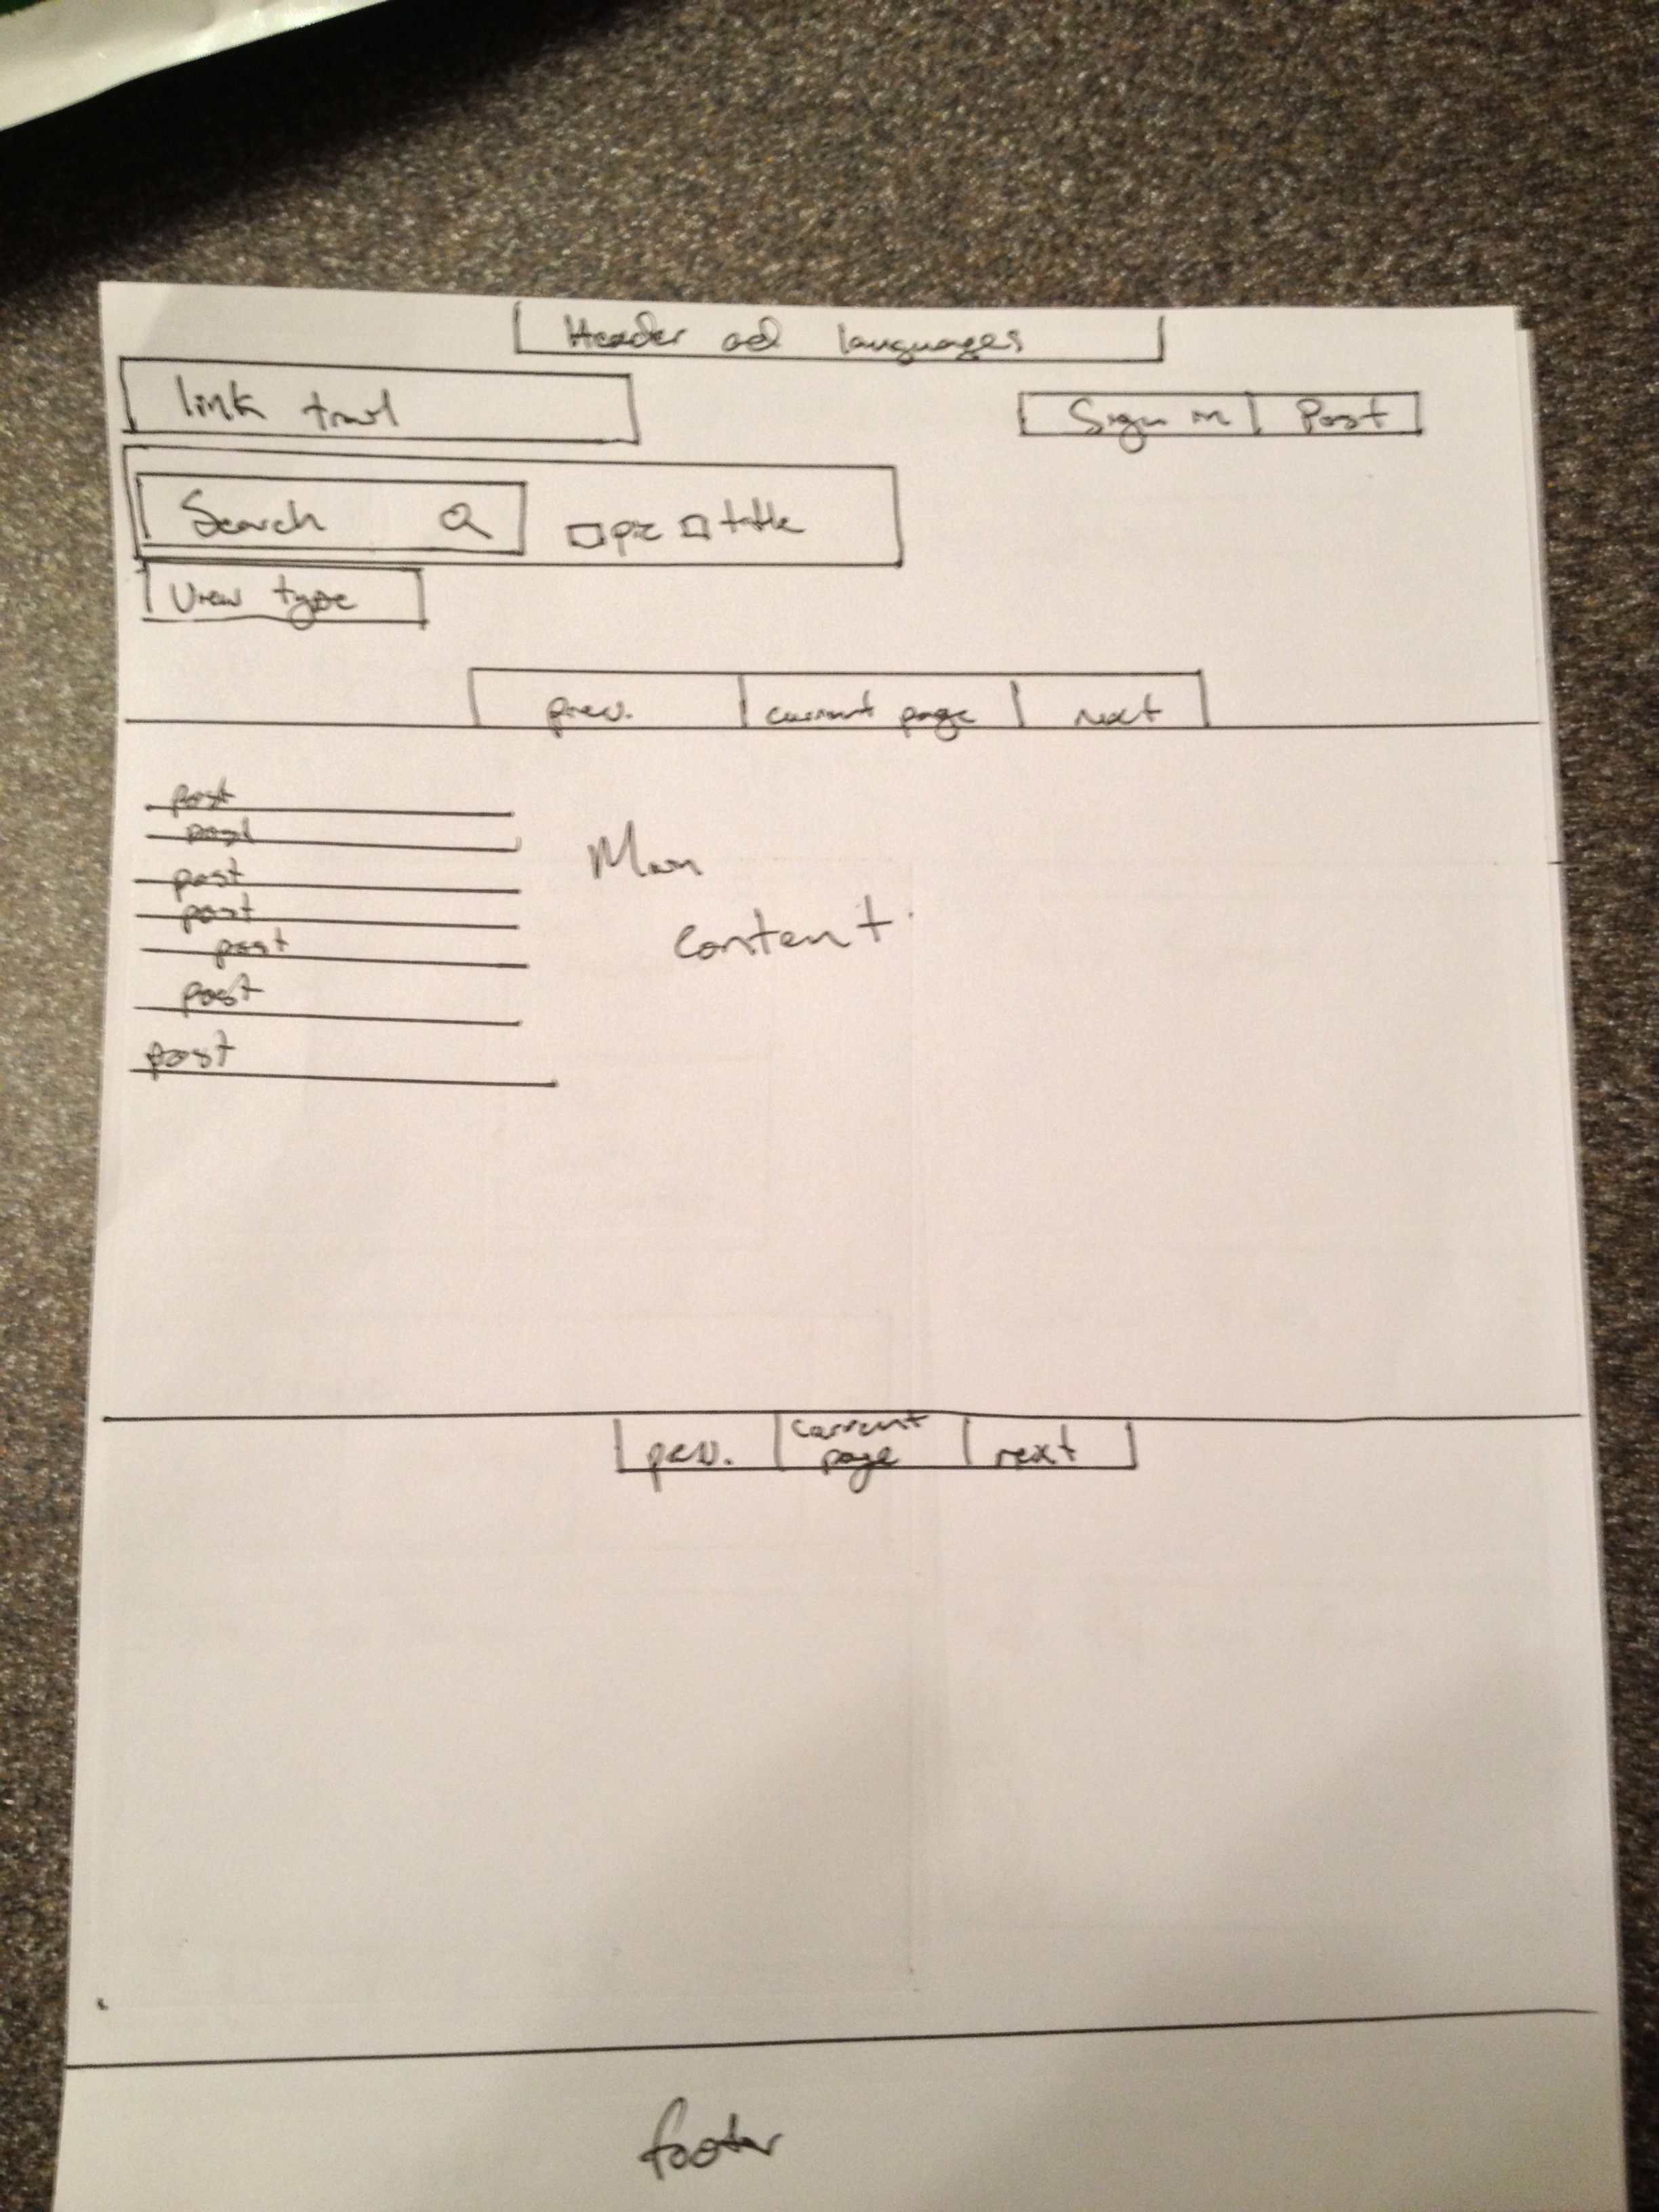 Header ad languages
link trail
Sign in Post
Search
pic title
View type
prev. current page next
post
post
post
post
post
post
post
Main
Content
prev. current page next
footer